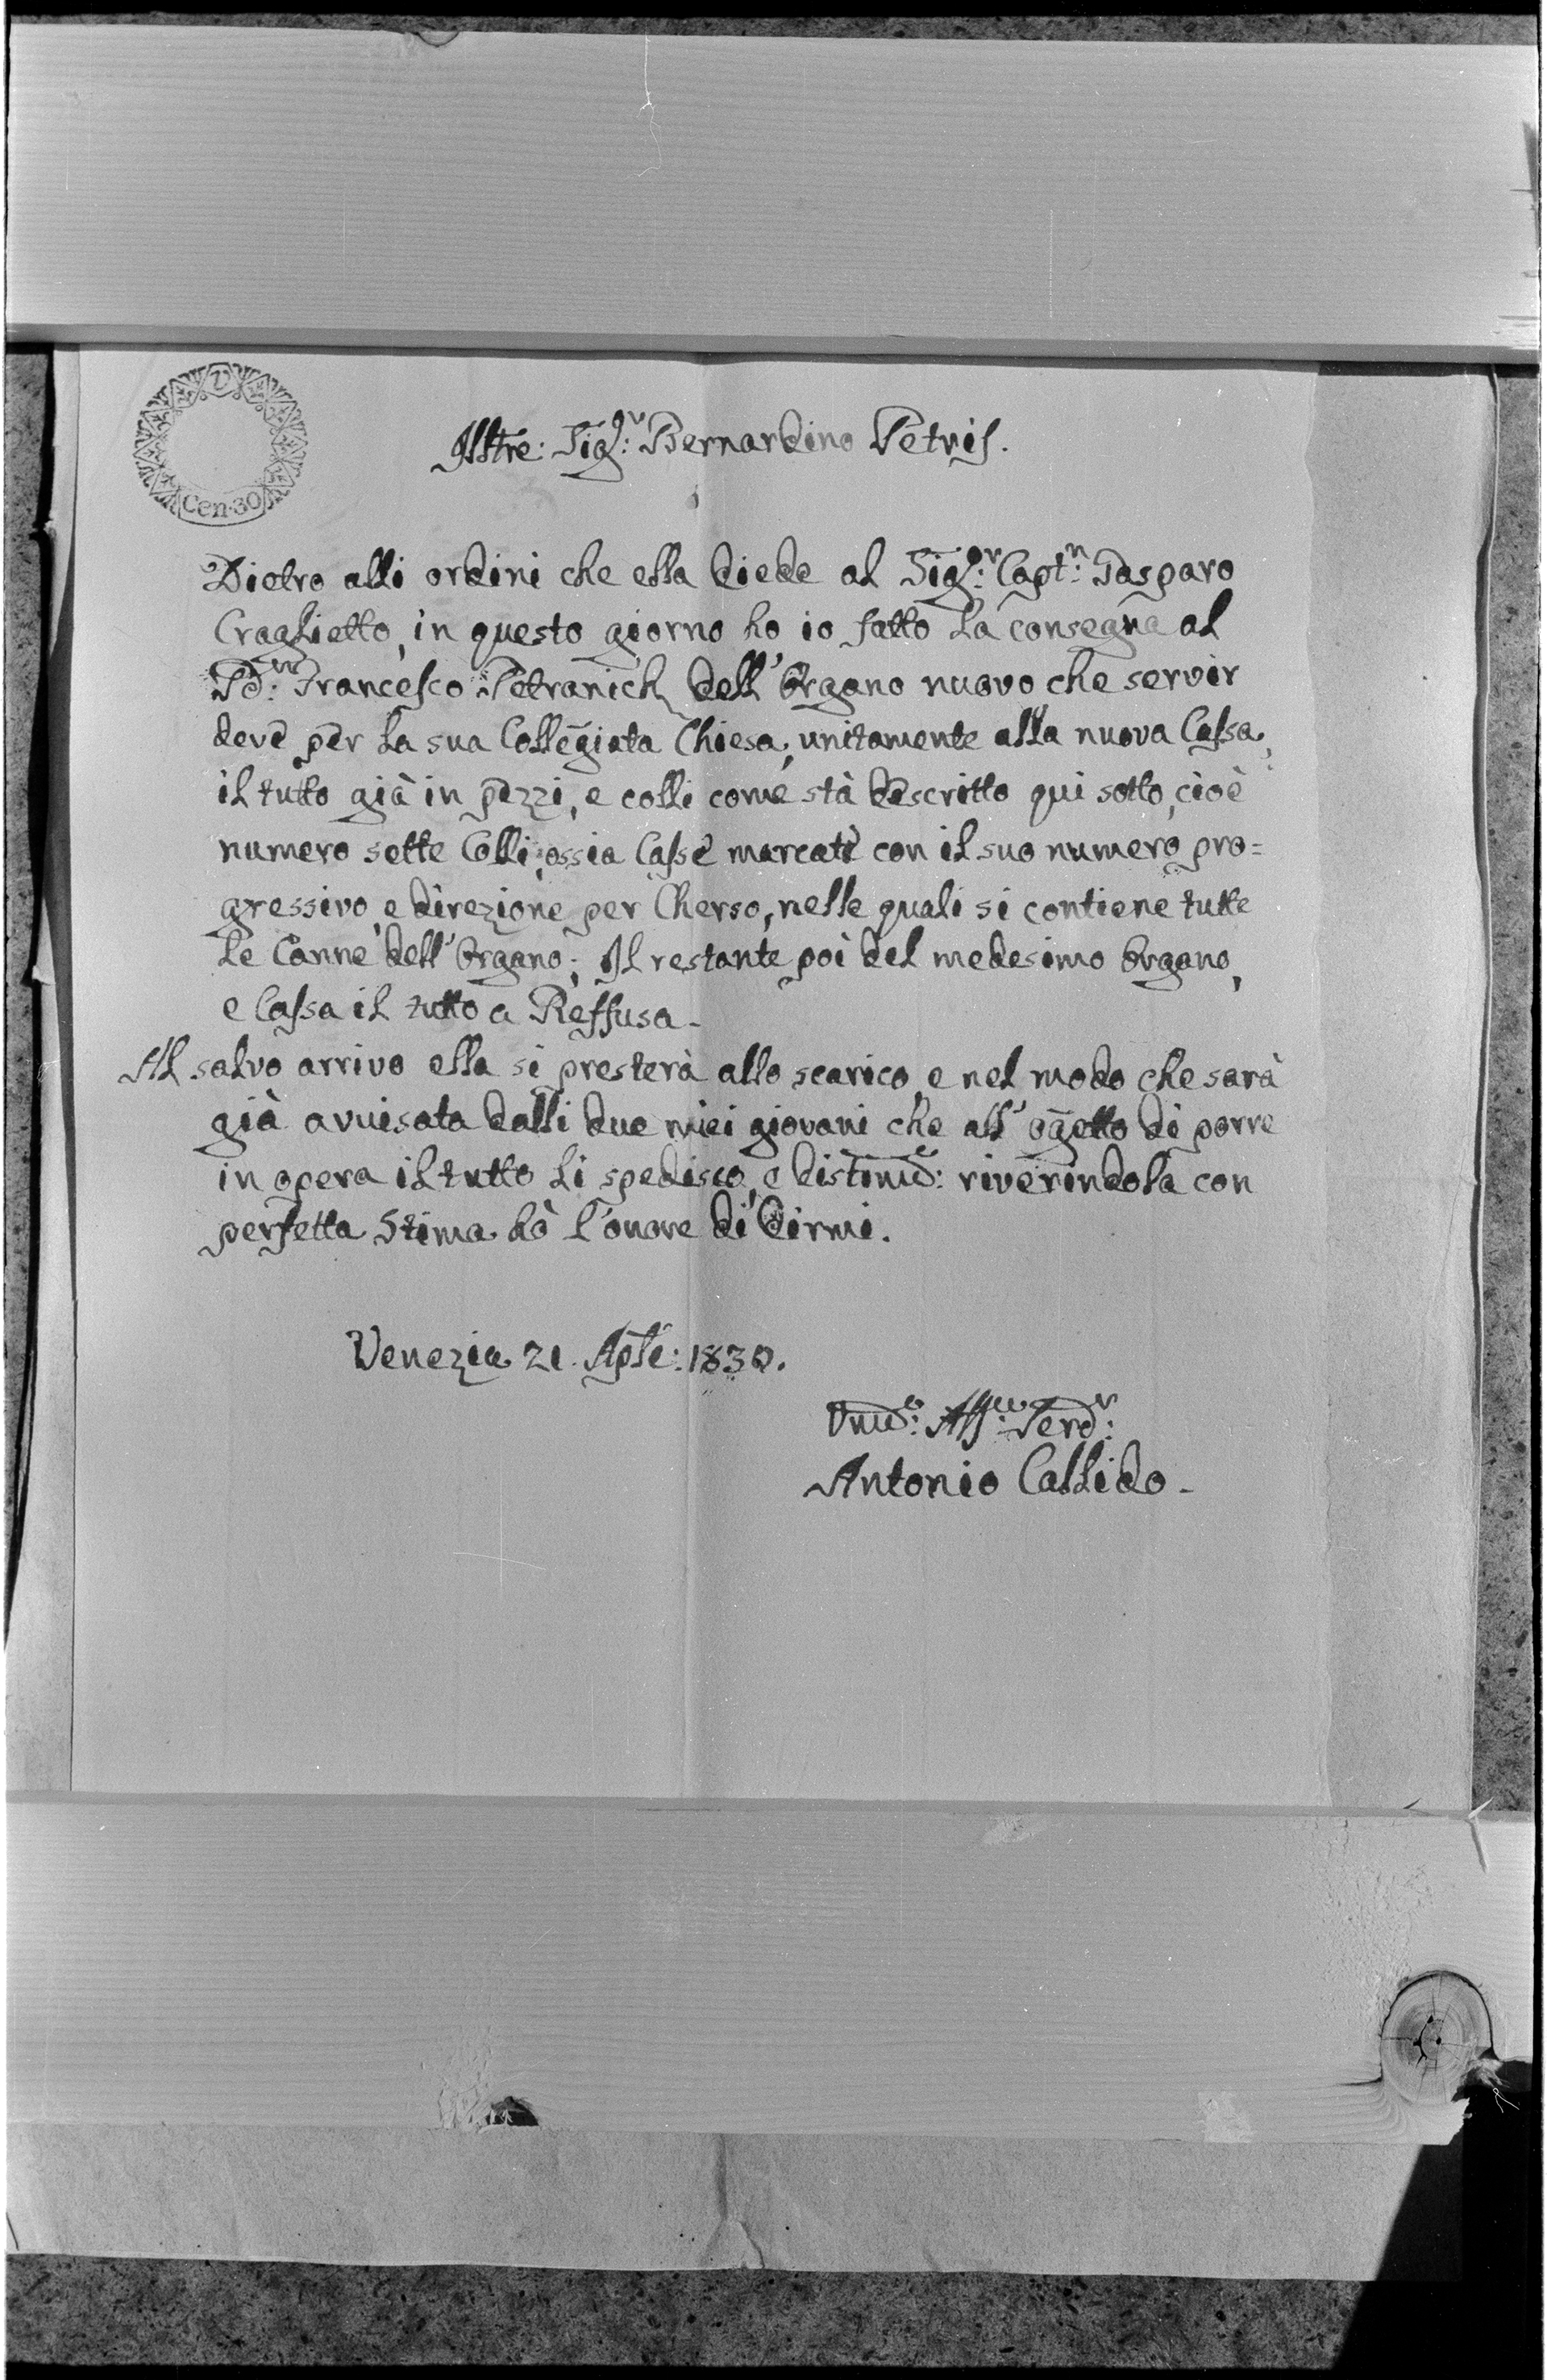 Cen. 30
Illstre: Sigr: Bernardino Petris.
Dietro alli ordini che ella diede al Sigr: Captn: Gasparo
Craglietto, in questo giorno ho io fatto la consegna al
Francesco Petranich dell'Organo nuovo che servir
deve per la sua Collegiata Chiesa, unitamente alla nuova Cassa,
il tutto già in pezzi, e colli come stà descritto qui sotto, cioè
numero sette Colli, ossia Casse marcate con il suo numero pro=
gressivo, e direzione per Cherso, nelle quali si contiene tutte
le Canne dell'Organo; Il restante poi del medesimo Organo,
e Cassa il tutto a Reffusa.
Al salvo arrivo ella si presterà allo scarico, e nel modo che sarà
già avvisata dalli due miei giovani che all'oggetto di porre
in opera il tutto li spedisco, e distinte: riverindola con
perfetta Stima hò l'onore di dirmi.
Venezia 21. Aple: 1830.
Umo: Affmo: Serdr:
Antonio Callido.